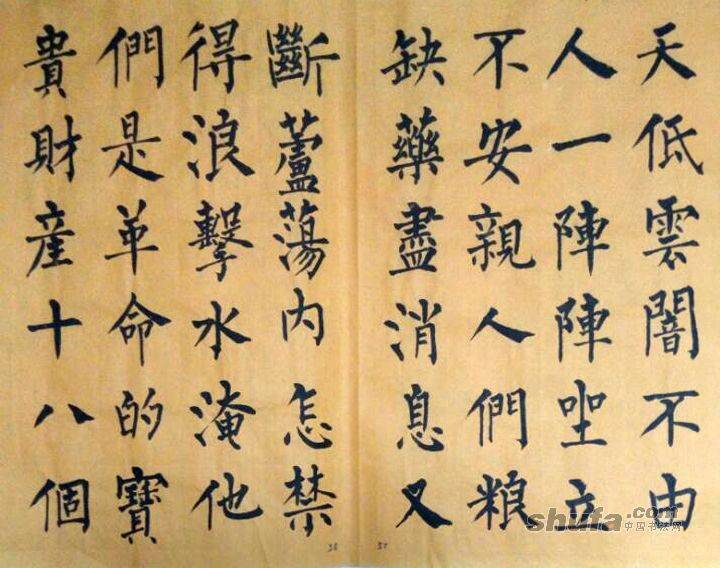 天低雲闇不由
人一陣陣坐立
不安親人們粮
缺藥盡消息又
斷蘆蕩内怎禁
得浪擊水淹他
們是革命的寶
貴財産十八個
37
38
shufa.com
中国书法网